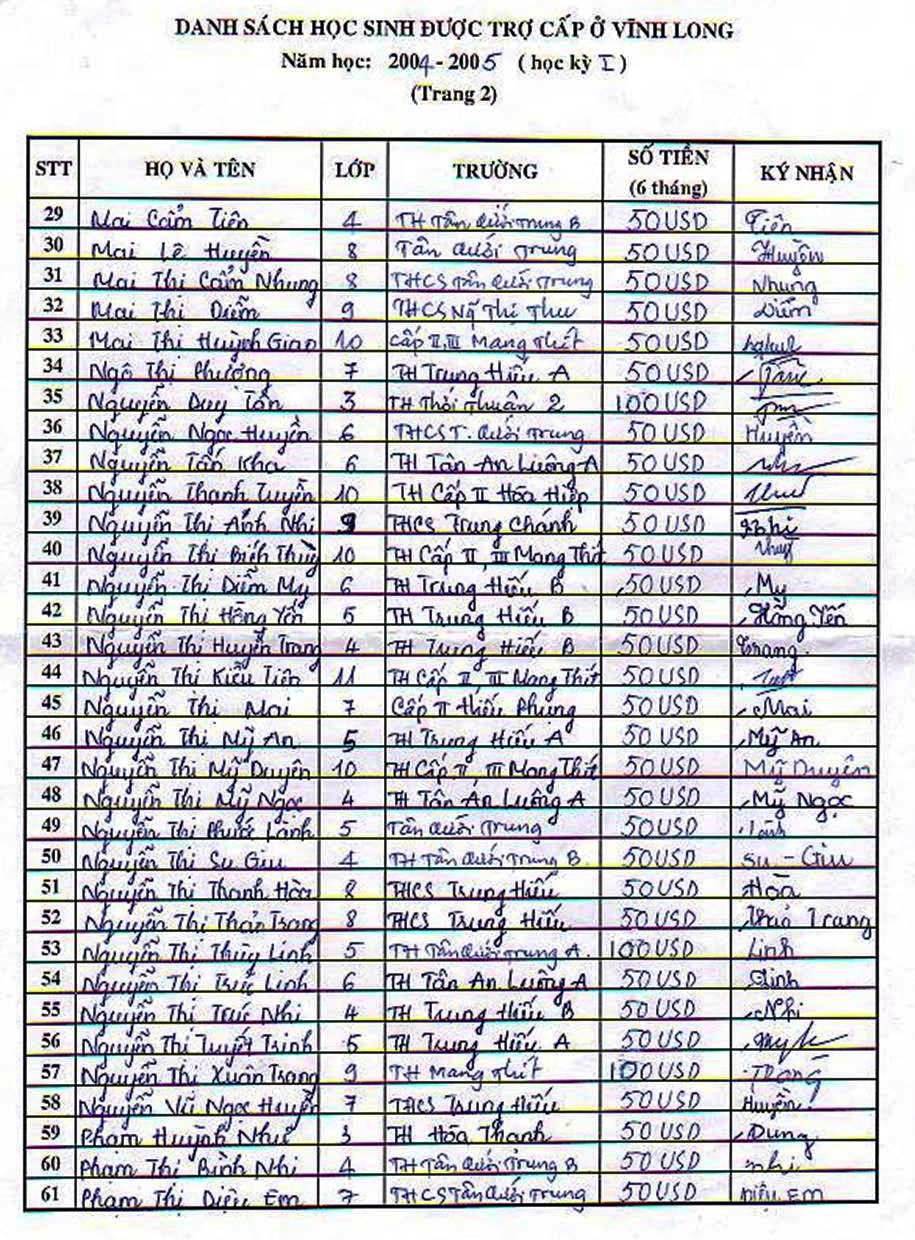 DANH SÁCH HỌC SINH ĐƯỢC TRỢ CẤP Ở VĨNH LONG
Năm học: 2004-2005 (học kỳ I)
(Trang 2)
STT HỌ VÀ TÊN LỚP TRƯỜNG SỐ TIỀN (6 tháng) KÝ NHẬN
29 Mai Cẩm Tiên 4 TH Tân Quới Trung B 50 USD Tiên
30 Mai Lê Huyền 8 Tân Quới Trung 50 USD Huyền
31 Mai Thị Cẩm Nhung 8 THCS Tân Quới Trung 50 USD Nhung
32 Mai Thị Diễm 9 THCS Ng Thị Thu 50 USD Diễm
33 Mai Thị Huỳnh Giao 10 Cấp II, III Mang Thít 50 USD
34 Ngô Thị Phượng 7 TH Trung Hiếu A 50 USD
35 Nguyễn Duy Tân 3 TH Thới Thuận 2 100 USD
36 Nguyễn Ngọc Huyền 6 THCS T. Quới Trung 50 USD Huyền
37 Nguyễn Tấn Kha 6 TH Tân An Luông A 50 USD
38 Nguyễn Thanh Tuyền 10 TH Cấp II Hòa Hiệp 50 USD
39 Nguyễn Thị Ánh Nhi 9 THCS Trung Chánh 50 USD Nhi
40 Nguyễn Thị Bích Thủy 10 TH Cấp II, III Mang Thít 50 USD Thuỷ
41 Nguyễn Thị Diễm My 6 TH Trung Hiếu B 50 USD My
42 Nguyễn Thị Hồng Yến 5 TH Trung Hiếu B 50 USD Hồng Yến
43 Nguyễn Thị Huyền Trang 4 TH Trung Hiếu B 50 USD Trang
44 Nguyễn Thị Kiều Tiên 11 TH Cấp II, III Mang Thít 50 USD
45 Nguyễn Thị Mai 7 Cấp II Hiếu Phụng 50 USD Mai
46 Nguyễn Thị Mỹ An 5 TH Trung Hiếu A 50 USD Mỹ An
47 Nguyễn Thị Mỹ Duyên 10 TH Cấp II, III Mang Thít 50 USD Mỹ Duyên
48 Nguyễn Thị Mỹ Ngọc 4 TH Tân An Luông A 50 USD Mỹ Ngọc
49 Nguyễn Thị Phước Lành 5 Tân Quới Trung 50 USD Lành
50 Nguyễn Thị Su Giu 4 TH Tân Quới Trung B. 50 USD Su - Giu
51 Nguyễn Thị Thanh Hòa 8 THCS Trung Hiếu 50 USD Hòa
52 Nguyễn Thị Thảo Trang 8 THCS Trung Hiếu 50 USD Thảo Trang
53 Nguyễn Thị Thùy Linh 5 TH Tân Quới Trung A. 100 USD Linh
54 Nguyễn Thị Trúc Linh 6 TH Tân An Luông A 50 USD Linh
55 Nguyễn Thị Trúc Nhi 4 TH Trung Hiếu B 50 USD Nhi
56 Nguyễn Thị Tuyết Trinh 5 TH Trung Hiếu A 50 USD
57 Nguyễn Thị Xuân Trang 9 TH Mang Thít 100 USD Trang
58 Nguyễn Vũ Ngọc Huyền 7 THCS Trung Hiếu 50 USD Huyền
59 Phạm Huỳnh Như 3 TH Hòa Thạnh 50 USD Dung
60 Phạm Thị Bình Nhi 4 TH Tân Quới Trung B 50 USD nhi
61 Phạm Thị Diệu Em 7 THCS Tân Quới Trung 50 USD Diệu Em